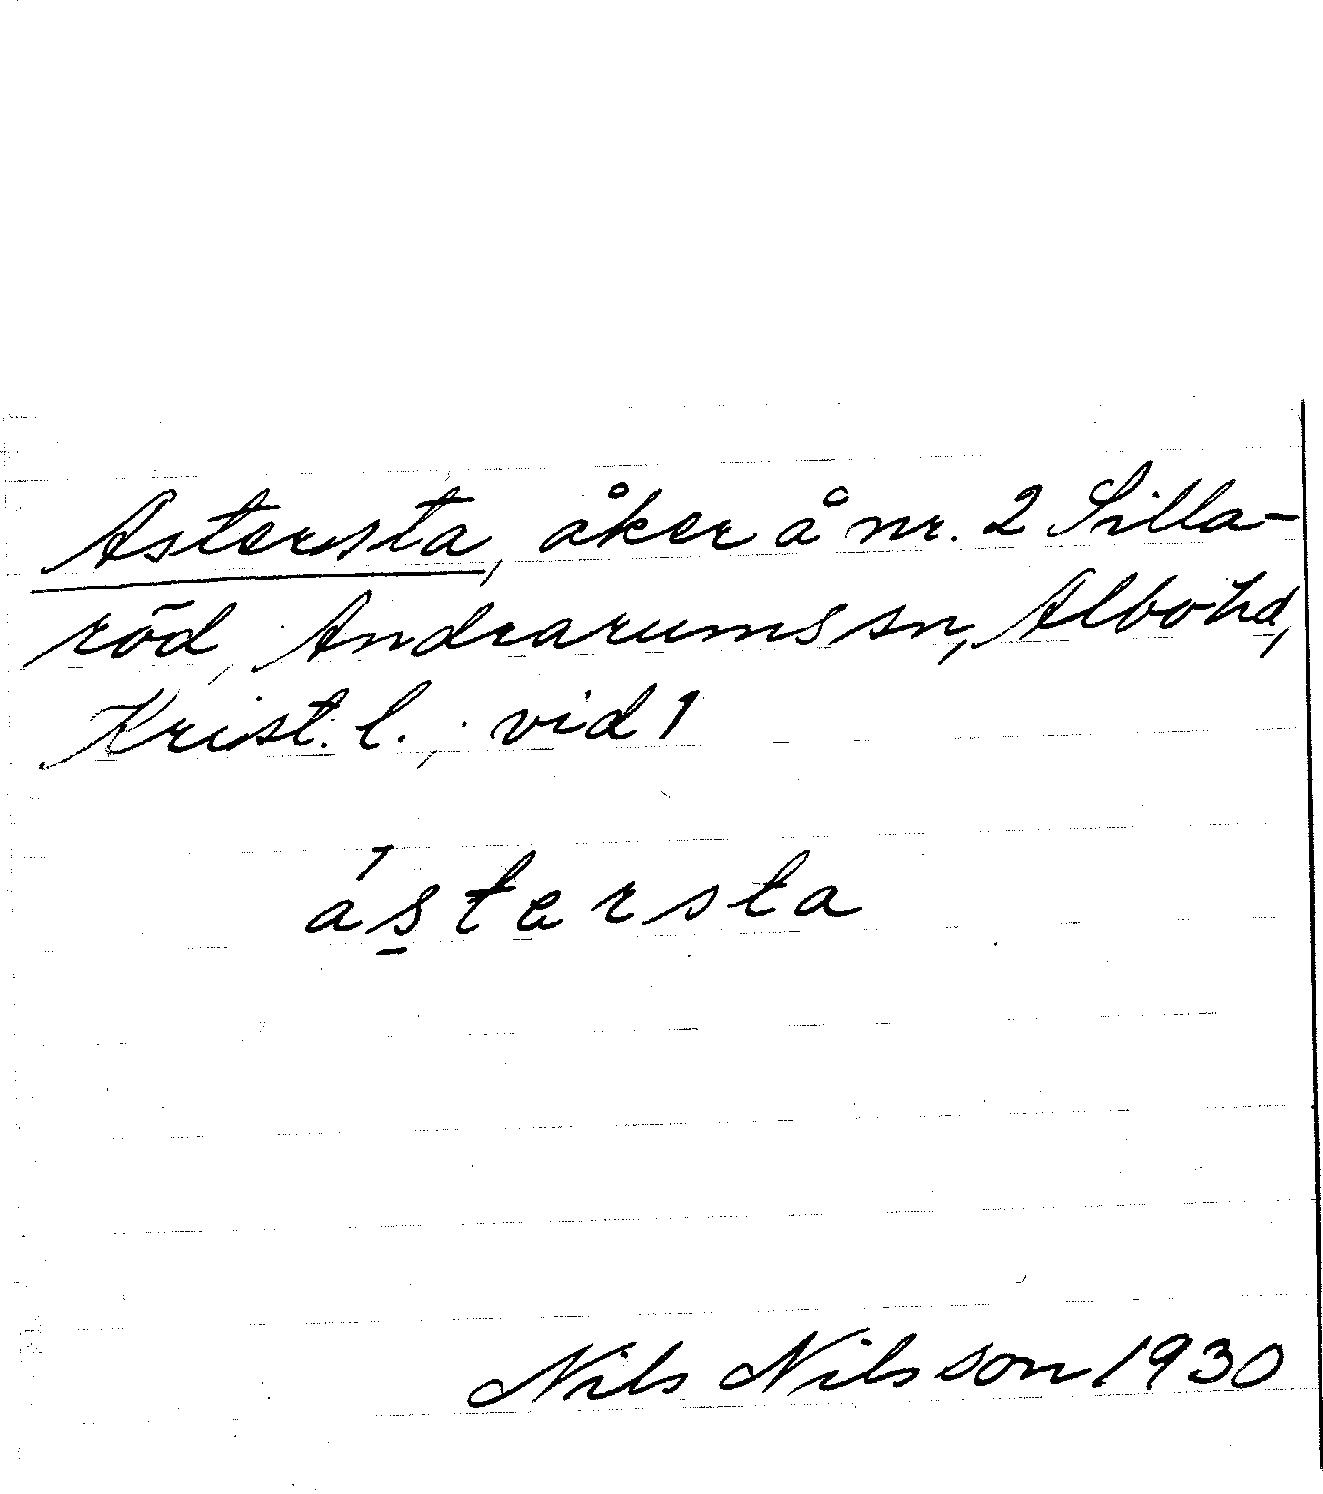 Astersta, åker å nr. 2 Silla-
röd, Andrarums sn, Albo hd,
Krist. l., vid 1
ás̱tersta
Nils Nilsson 1930